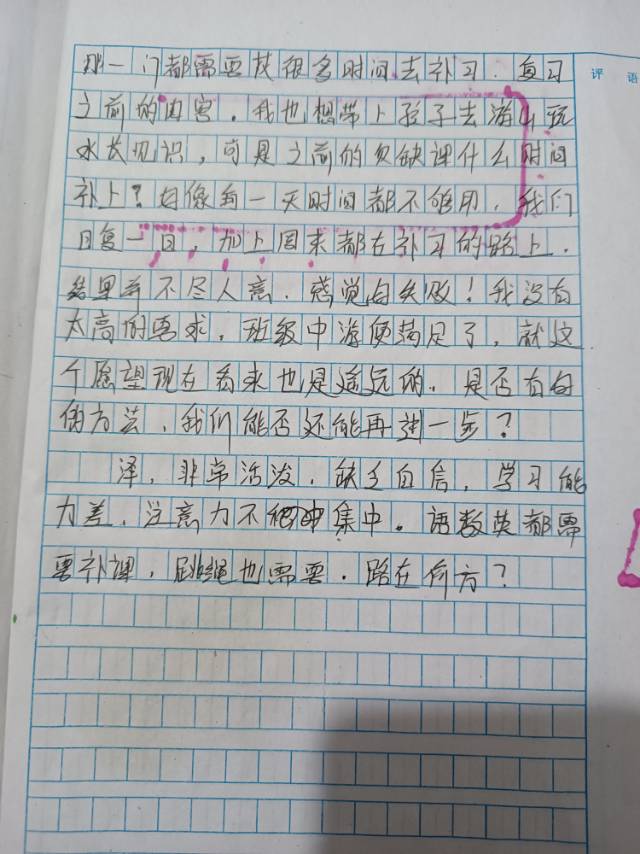 评 语
那一门都需要找很多时间去补习．复习
之前的内容．我也想带上孩子去游山玩
水长见识，可是之前的欠缺课什么时间
补上？好像每一天时间都不够用．我们
日复一日，加上周末都在补习的路上．
结果并不尽人意．感觉自失败！我没有
太高的要求．班级中游便满足了．就这
个愿望现在看来也是遥远的．是否有
方法，我们能否还能再进一步？
泽，非常活泼．缺乏自信，学习能
力差．注意力不集中．语数英都需
要补课，跳绳也需要．路在何方？